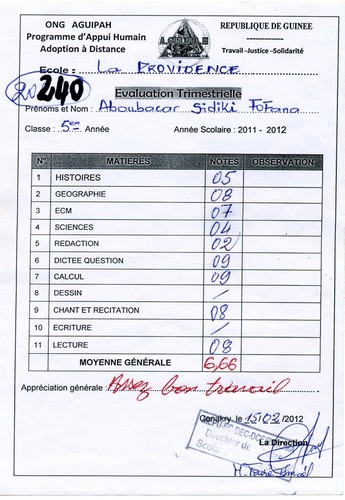 ONG AGUIPAH
Programme d'Appui Humain
Adoption à Distance
REPUBLIQUE DE GUINEE
Travail -Justice -Solidarité
Ecole : LA PROVIDENCE
240
Evaluation Trimestrielle
Prénoms et Nom : Aboubacar Sidiki Fofana
Classe : 5em Année Année Scolaire : 2011 - 2012
N° MATIERES NOTES OBSERVATION
1 HISTOIRES 05
2 GEOGRAPHIE 08
3 ECM 07
4 SCIENCES 04
5 REDACTION 02
6 DICTEE QUESTION 09
7 CALCUL 09
8 DESSIN /
9 CHANT ET RECITATION 08
10 ECRITURE /
11 LECTURE 08
MOYENNE GÉNÉRALE 6,66
Appréciation générale : Assez bon travail
Conakry, le 15/02/2012
DEC-DCE
Directeur de
La Direction